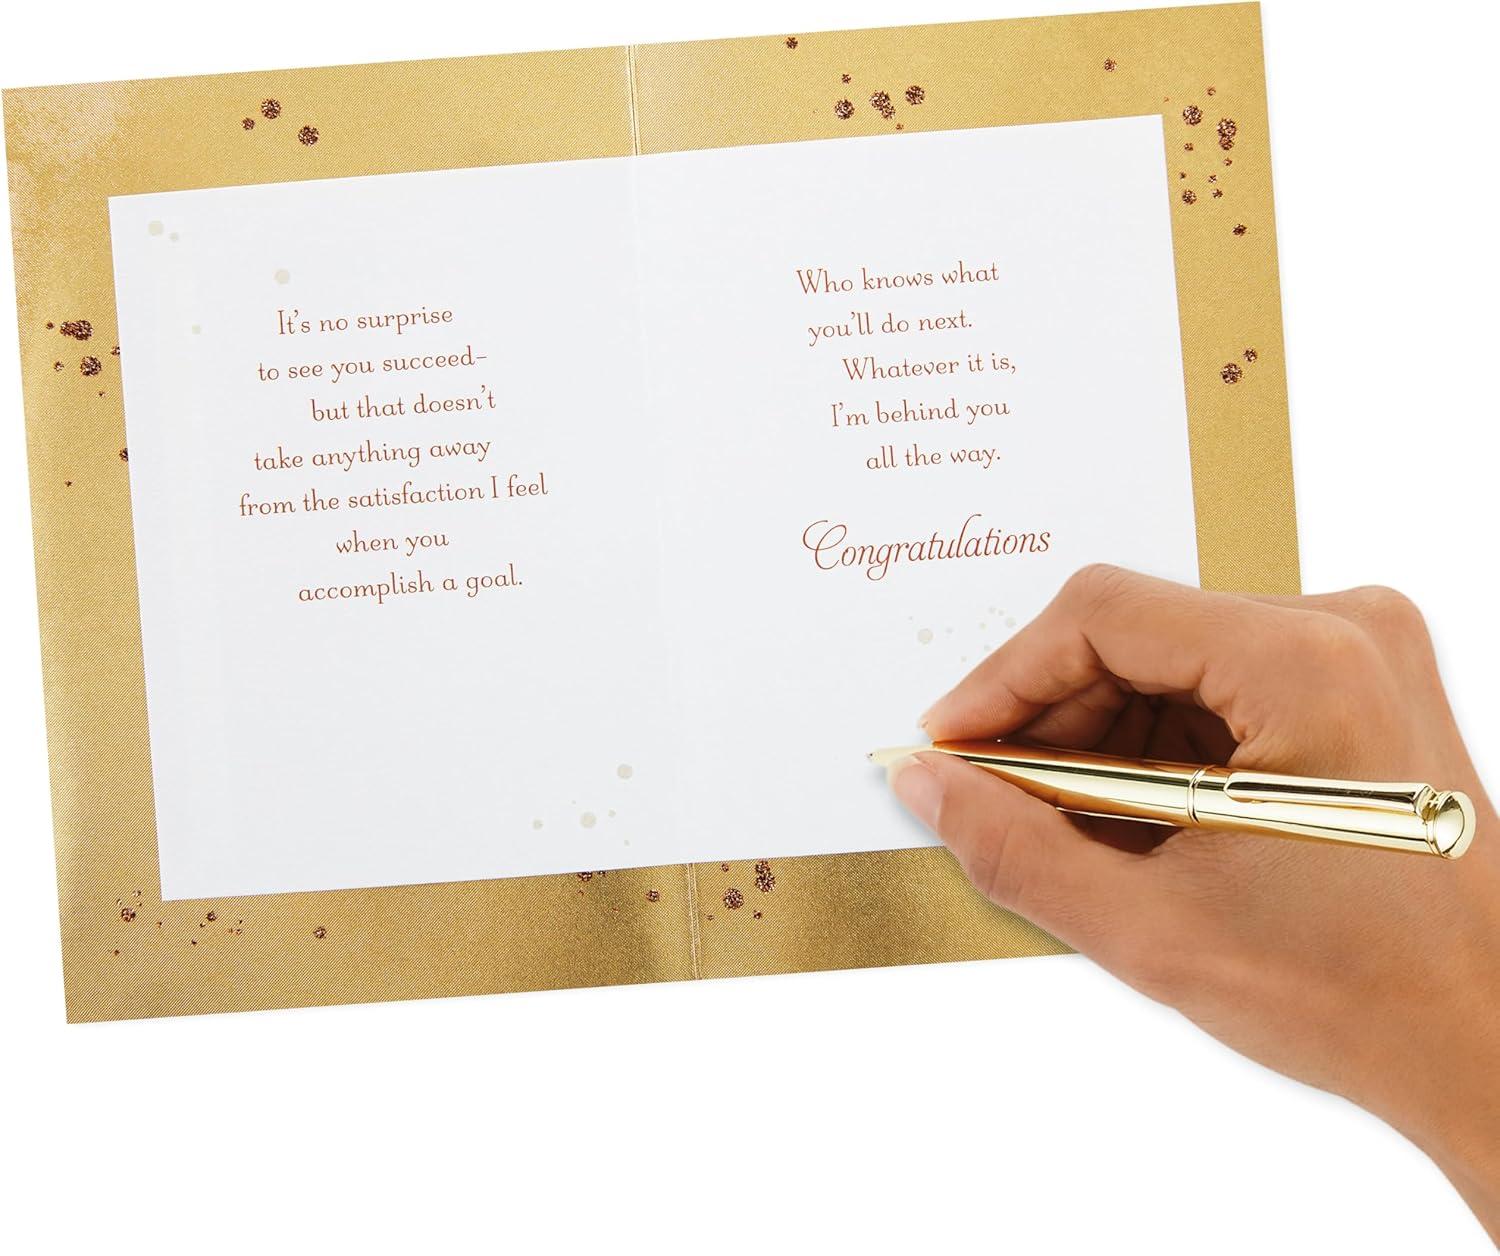 It's no surprise
to see you succeed–
but that doesn't
take anything away
from the satisfaction I feel
when you
accomplish a goal.
Who knows what
you'll do next.
Whatever it is,
I'm behind you
all the way.
Congratulations